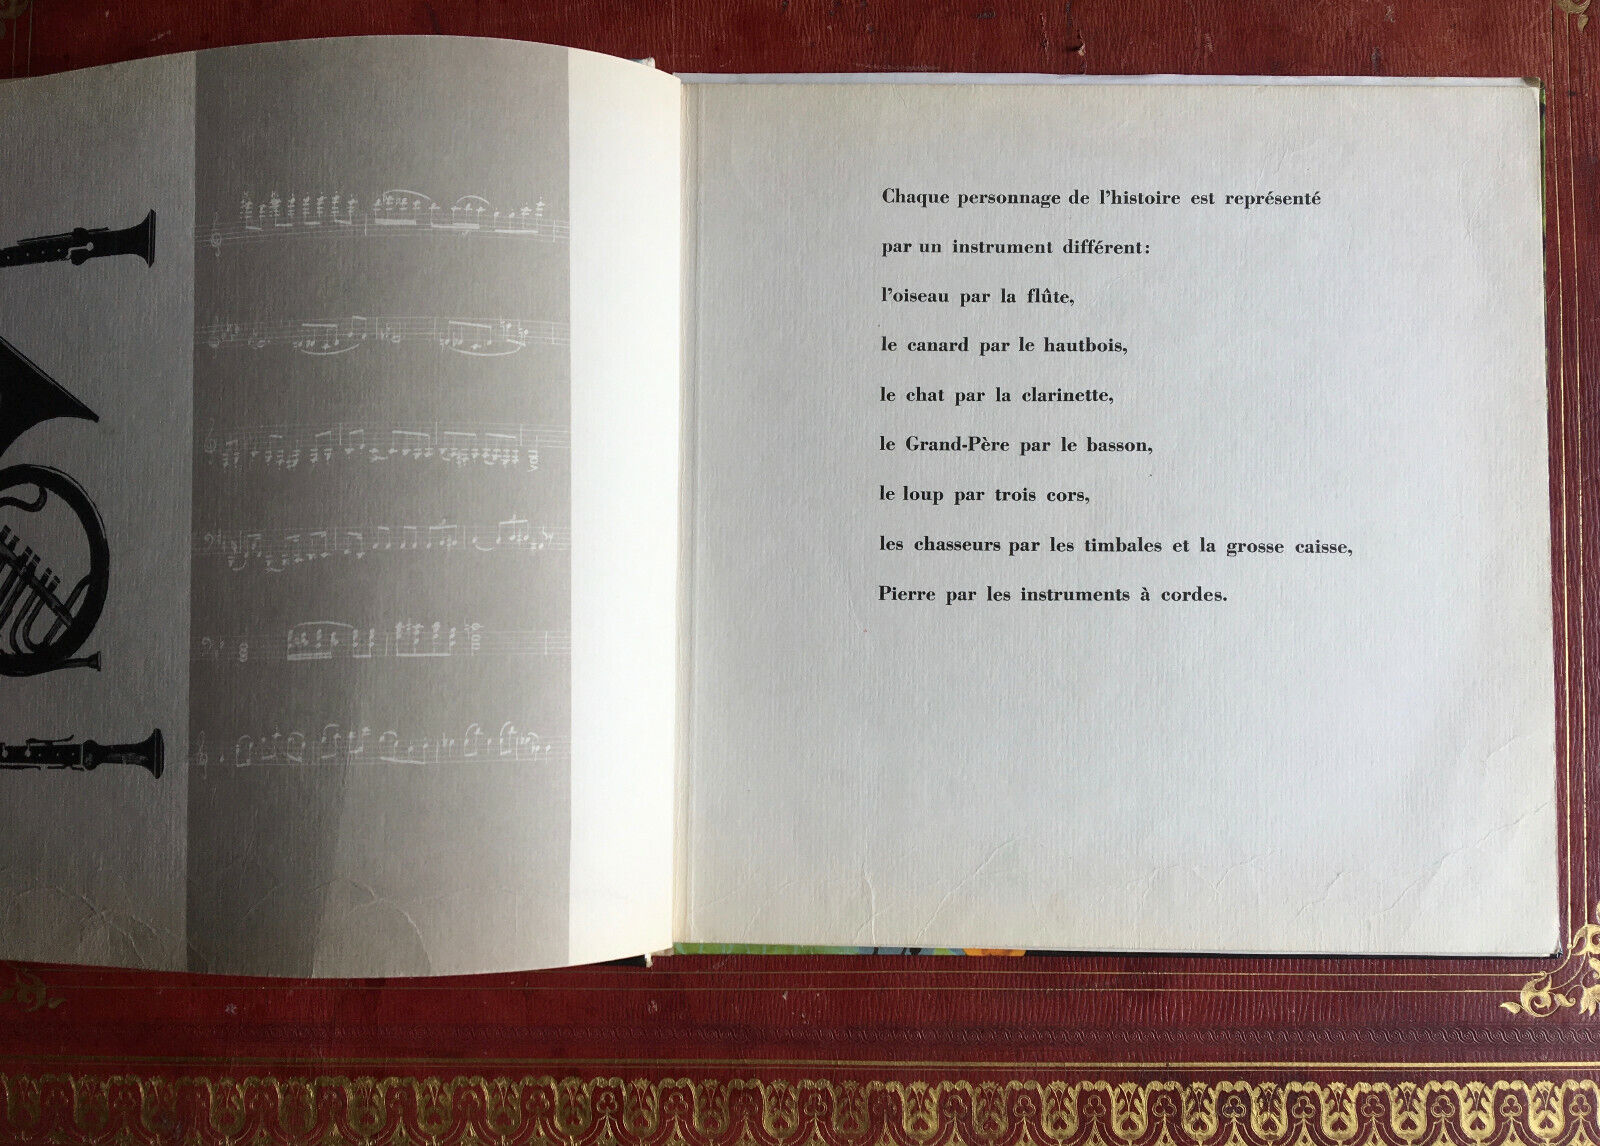 Chaque personnage de l'histoire est représenté
par un instrument différent:
l'oiseau par la flûte,
le canard par le hautbois,
le chat par la clarinette,
le Grand-Père par le basson,
le loup par trois cors,
les chasseurs par les timbales et la grosse caisse,
Pierre par les instruments à cordes.